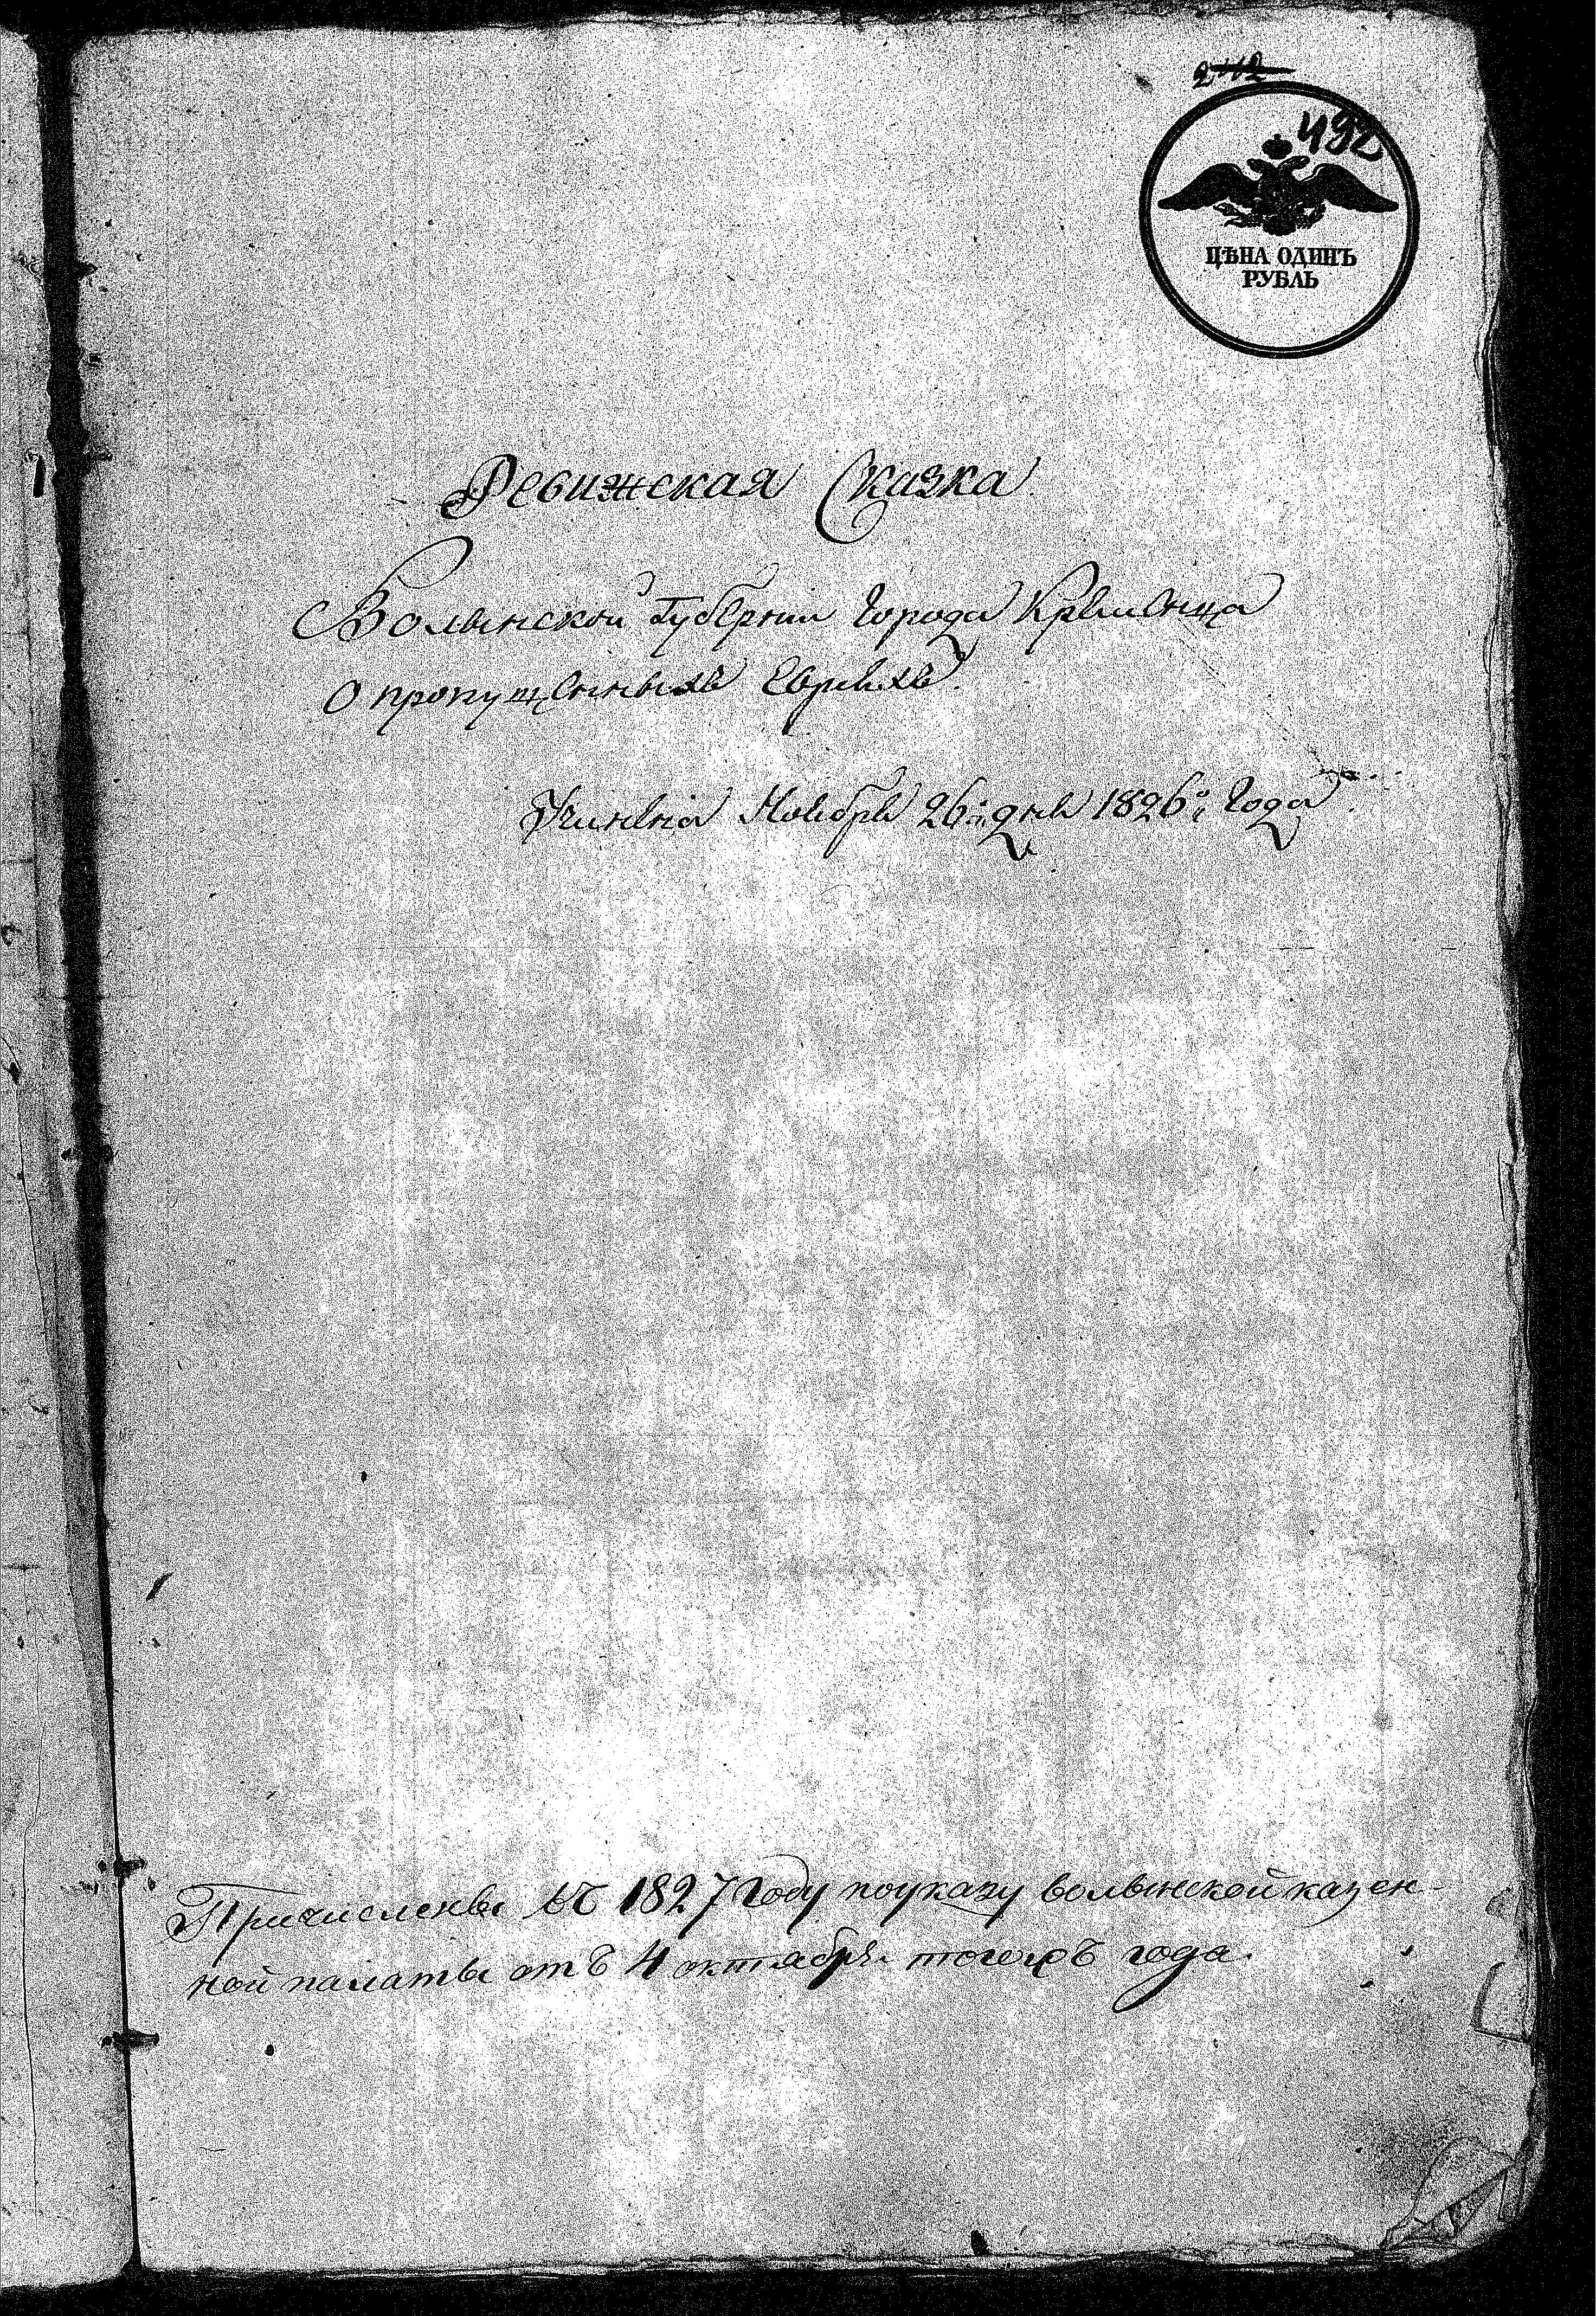 492
ЦѢНА ОДИНЪ
РУБЛЬ
Ревижская Сказка
Волынской Губернии Города Кременца
О пропущенныхъ Евреяхъ.
Учинена Ноября 26: дня 1826:го Года.
Причислены въ 1827 Году поуказу волынской казен-
ной палаты отъ 4 октября тогожъ года.